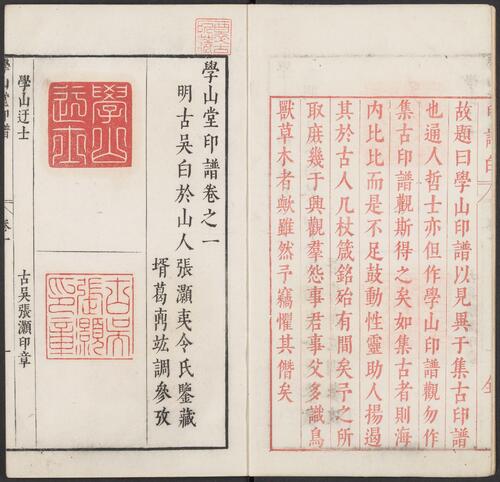 故題曰學山印譜以見異于集古印譜
也通人哲士亦但作學山印譜觀勿作
集古印譜觀斯得之矣如集古者則海
内比比而是不足鼓動性靈助人揚遏
其於古人几杖箴銘殆有間矣予之所
取庻幾于興觀羣怨事君事父多識鳥
獸草木者歟雖然予竊懼其僭矣
學山堂印譜卷之一
明古吳白於山人張灝夷令氏鑒藏
壻葛鼒竑調參攷
學山迂士
學山迂士
古吳張灝印章
古吳張灝印章
學山堂印譜
卷一